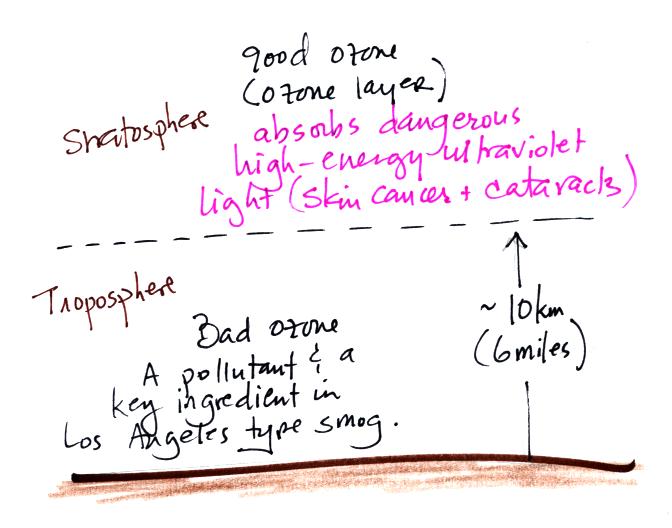 good ozone
(ozone layer)
Stratosphere
absorbs dangerous
high-energy ultraviolet
light (skin cancer + cataracts)
Troposphere
~ 10 km
(6 miles)
Bad ozone
A pollutant & a
key ingredient in
Los Angeles type smog.